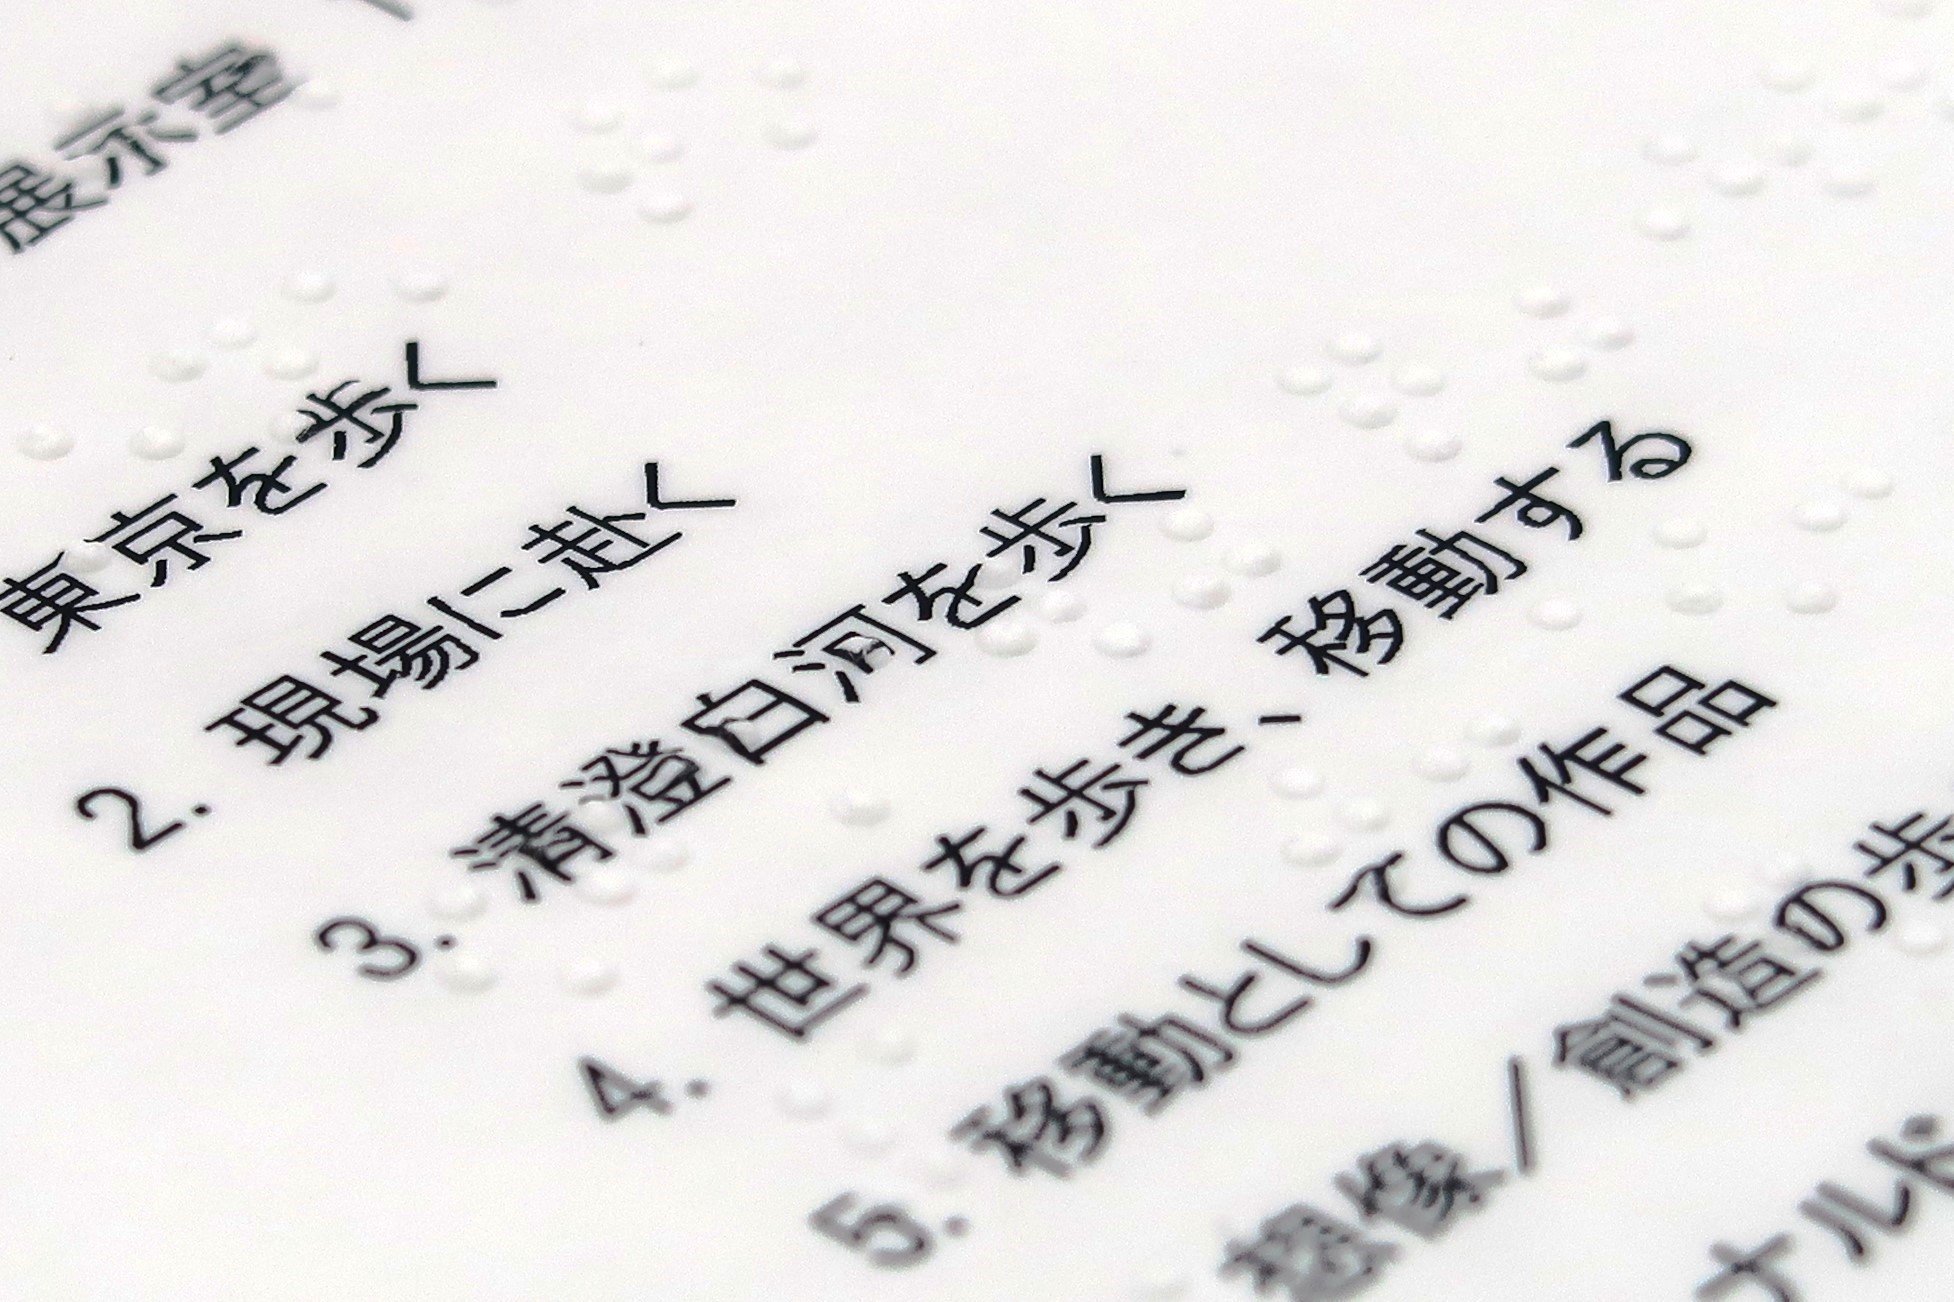 展示室
東京を歩く
2. 現場に赴く
3. 清澄白河を歩く
4. 世界を歩き、移動する
5. 移動としての作品
想像／創造の歩
ナルド